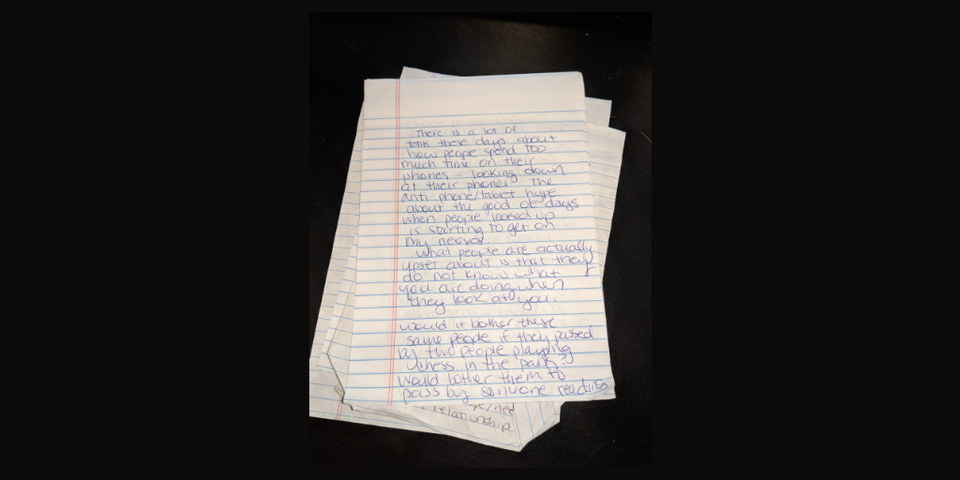 There is a lot of
talk these days about
how people spend too
much time on their
phones - looking down
at their phones. The
anti-phone/tablet hype
about the good ole days
when people looked up
is starting to get on
my nerves.
What people are actually
upset about is that they
do not know what
you are doing when
they look at you.
Would it bother these
same people if they passed
by two people playing
chess in the park?
Would bother them to
pass by someone reading
relationship